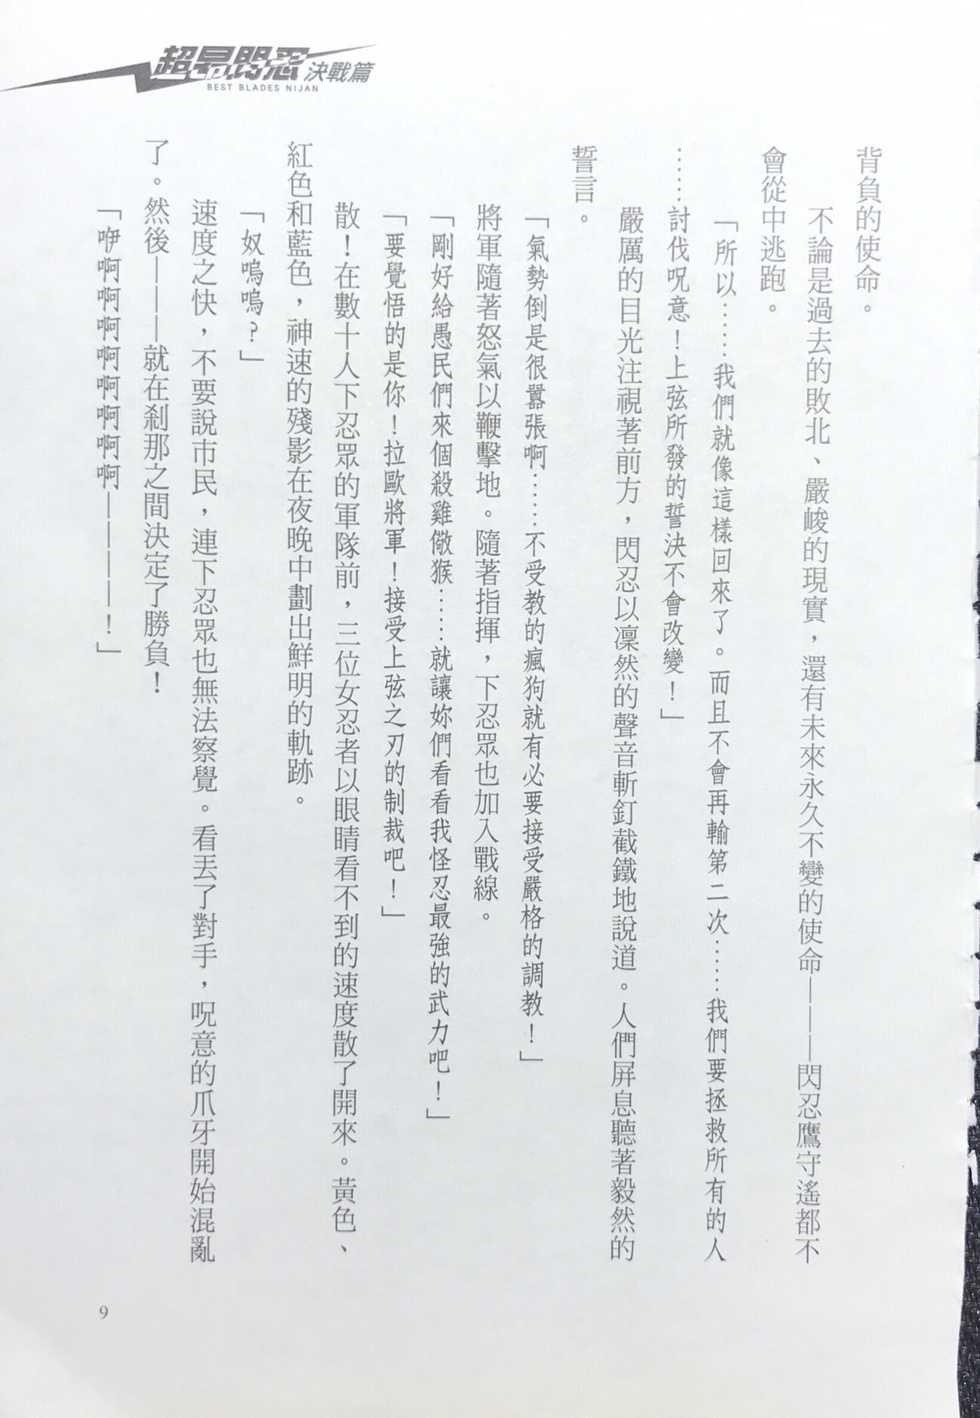 超昂閃忍 決戰篇
BEST BLADES NIJAN
背負的使命。
不論是過去的敗北、嚴峻的現實，還有未來永久不變的使命———閃忍鷹守遙都不
會從中逃跑。
「所以……我們就像這樣回來了。而且不會再輸第二次……我們要拯救所有的人
……討伐呪意！上弦所發的誓決不會改變！」
嚴厲的目光注視著前方，閃忍以凜然的聲音斬釘截鐵地說道。人們屏息聽著毅然的
誓言。
「氣勢倒是很囂張啊……不受教的瘋狗就有必要接受嚴格的調教！」
將軍隨著怒氣以鞭擊地。隨著指揮，下忍眾也加入戰線。
「剛好給愚民們來個殺雞儆猴……就讓妳們看看我怪忍最強的武力吧！」
「要覺悟的是你！拉歐將軍！接受上弦之刃的制裁吧！」
散！在數十人下忍眾的軍隊前，三位女忍者以眼睛看不到的速度散了開來。黃色、
紅色和藍色，神速的殘影在夜晚中劃出鮮明的軌跡。
「奴嗚嗚？」
速度之快，不要說市民，連下忍眾也無法察覺。看丟了對手，呪意的爪牙開始混亂
了。然後———就在剎那之間決定了勝負！
「咿啊啊啊啊啊啊啊啊————！」
9